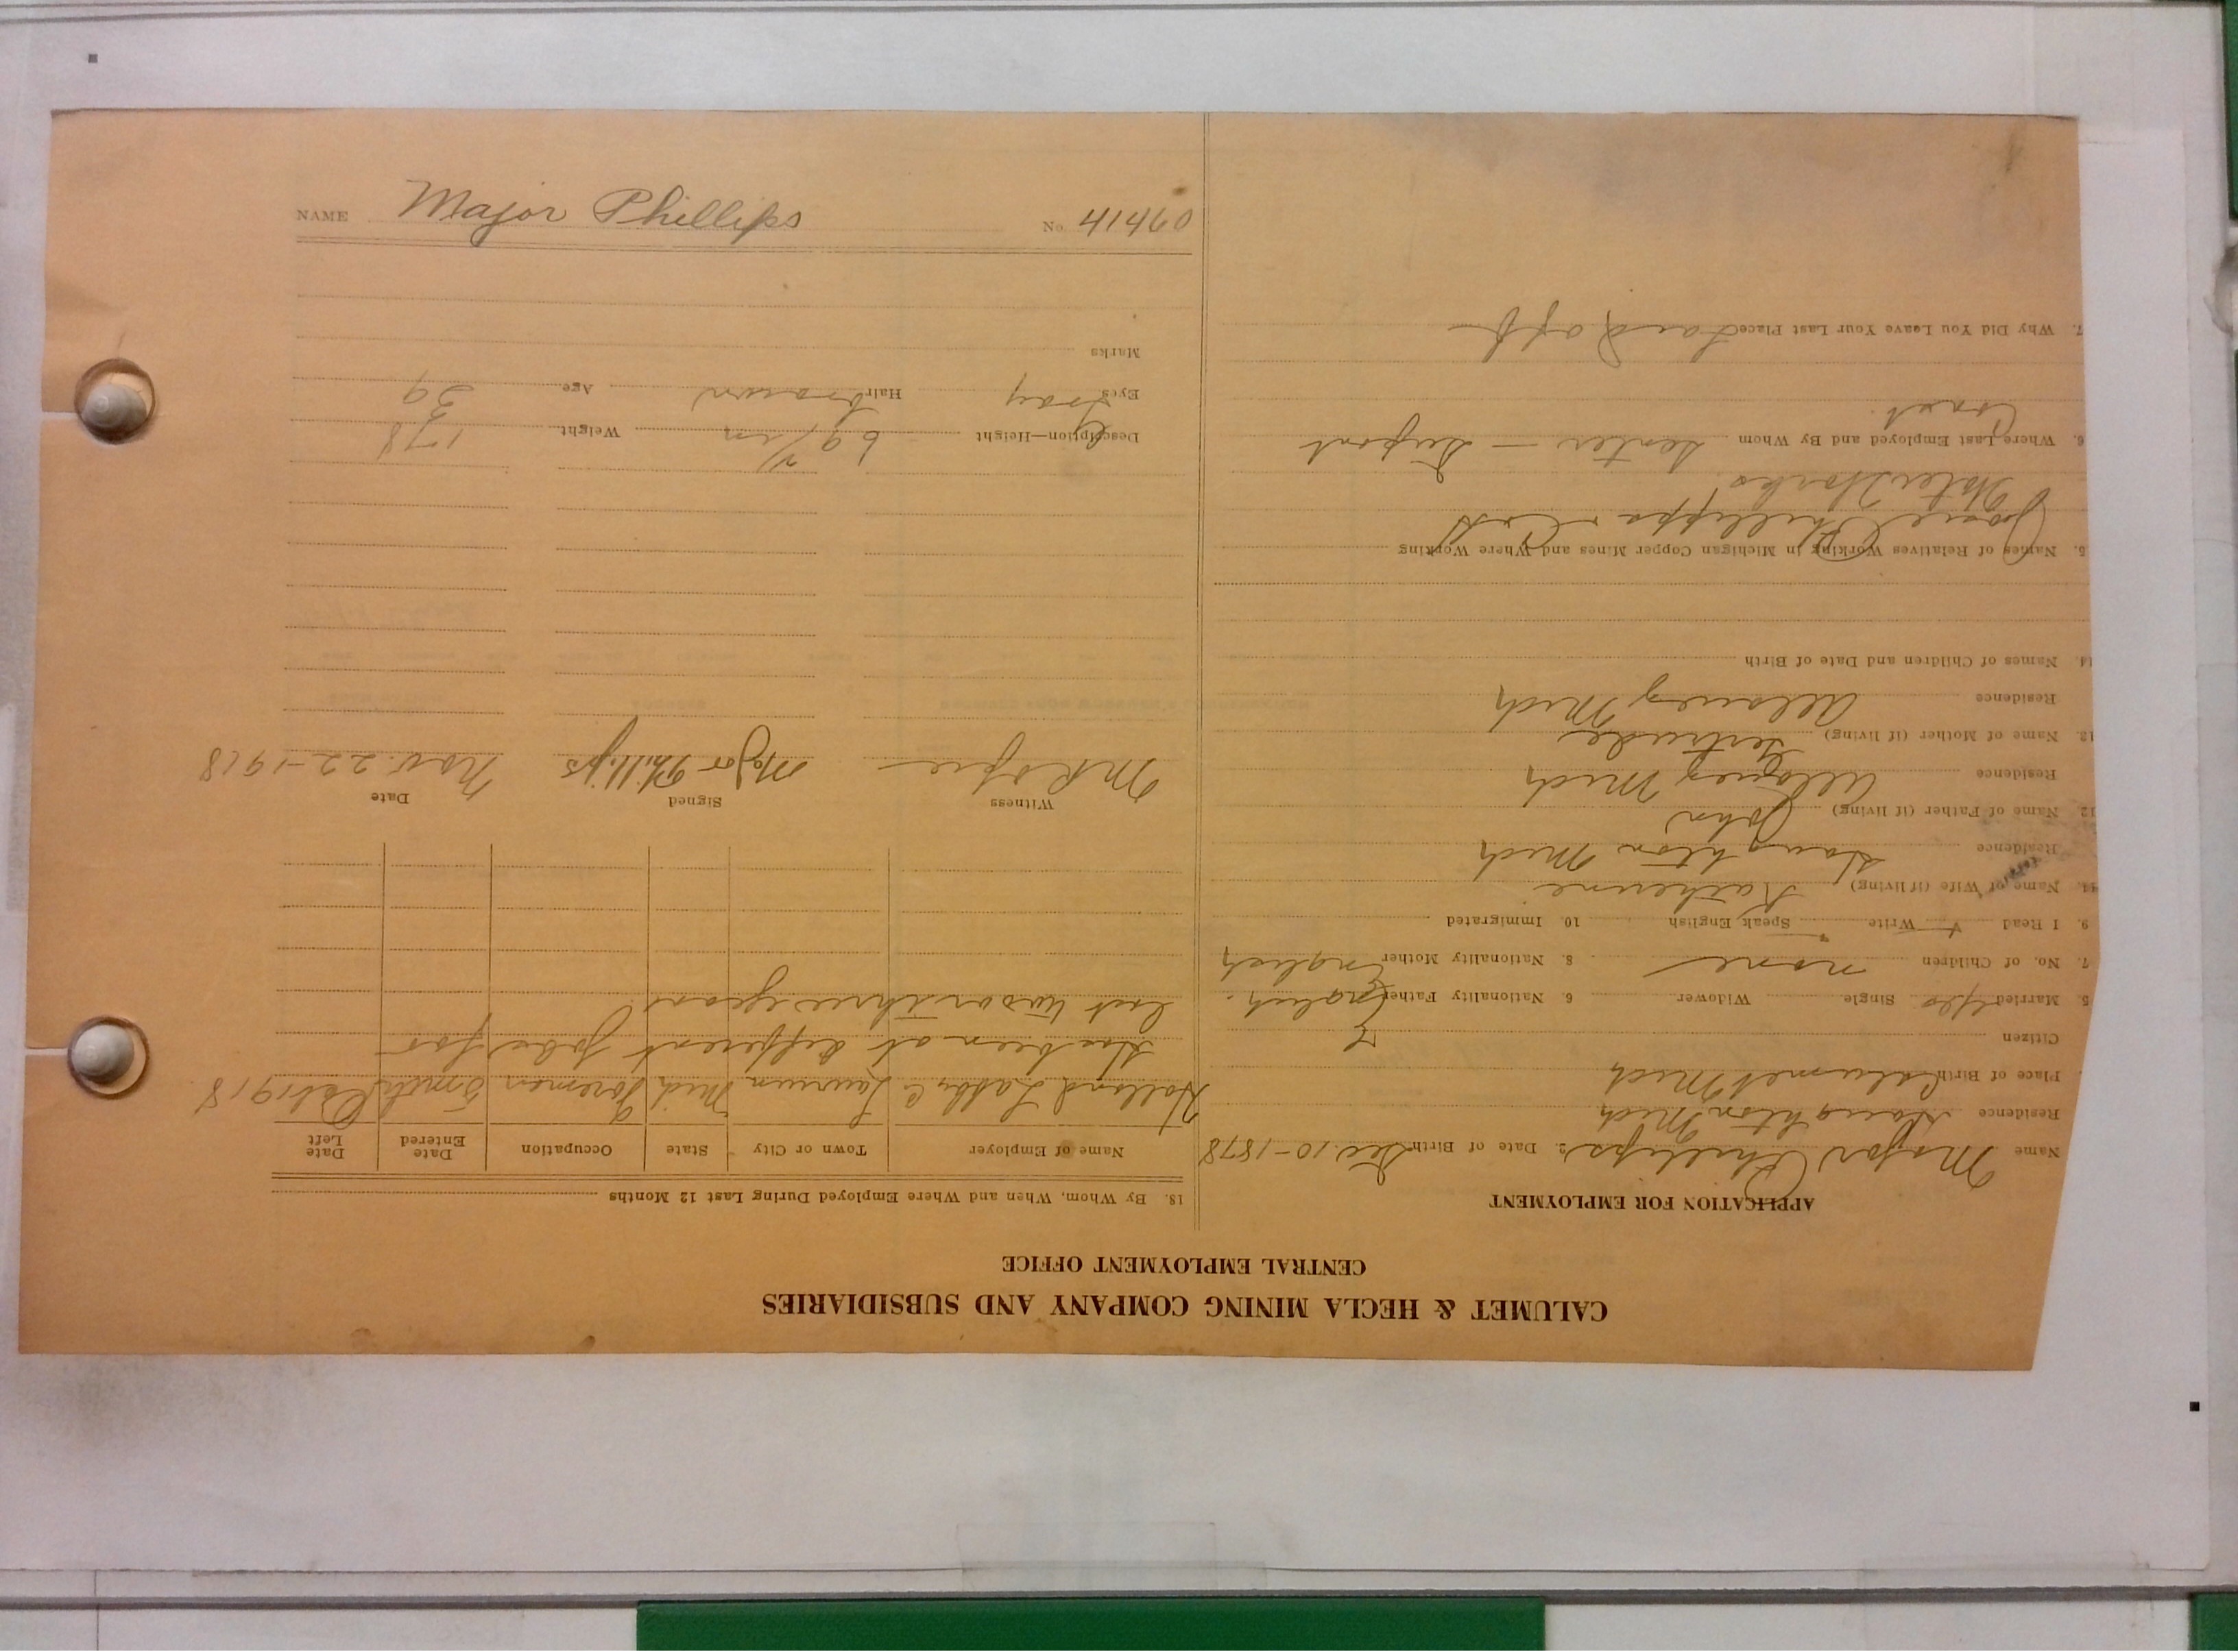 NAME Major Phillips No. 41460
CALUMET & HECLA MINING COMPANY AND SUBSIDIARIES
CENTRAL EMPLOYMENT OFFICE
APPLICATION FOR EMPLOYMENT
Name Major Phillips 2. Date of Birth Dec. 10-1878
Residence Houghton Mich
Place of Birth Calumet Mich
Citizen
5. Married Yes Single Widower 6. Nationality Father English.
7. No. of Children none 8. Nationality Mother English
9. I Read Write Speak English 10. Immigrated
Name of Wife (if living) Katherine
Residence Houghton Mich
12. Name of Father (if living) John
Residence Allouez Mich
13. Name of Mother (if living) Gertrude
Residence Allouez Mich
14. Names of Children and Date of Birth
5. Names of Relatives Working in Michigan Copper Mines and Where Working
Phillips
Water Works
6. Where Last Employed and By Whom Senter - Dupont
Const.
7. Why Did You Leave Your Last Place Laid off
18. By Whom, When and Where Employed During Last 12 Months
Name of Employer Town or City State Occupation Date Entered Date Left
Holland Laurium Mich Foreman 5 mth Oct 1918
Has been at different jobs for
last two or three years
Witness Signed Date
Major Phillips Nov. 22-1918
Description—Height 69 1/2 in Weight 178
Eyes Gray Hair brown Age 39
Marks